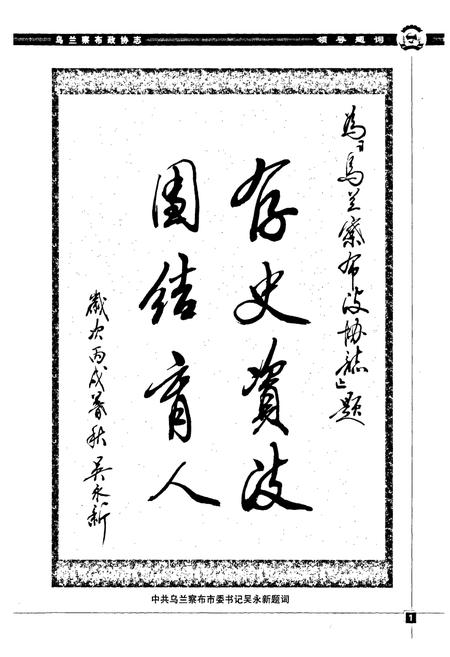 乌兰察布政协志
领导题词
为《乌兰察布政协志》题
存史资政
团结育人
岁次丙戌暮秋 吴永新
中共乌兰察布市委书记吴永新题词
1